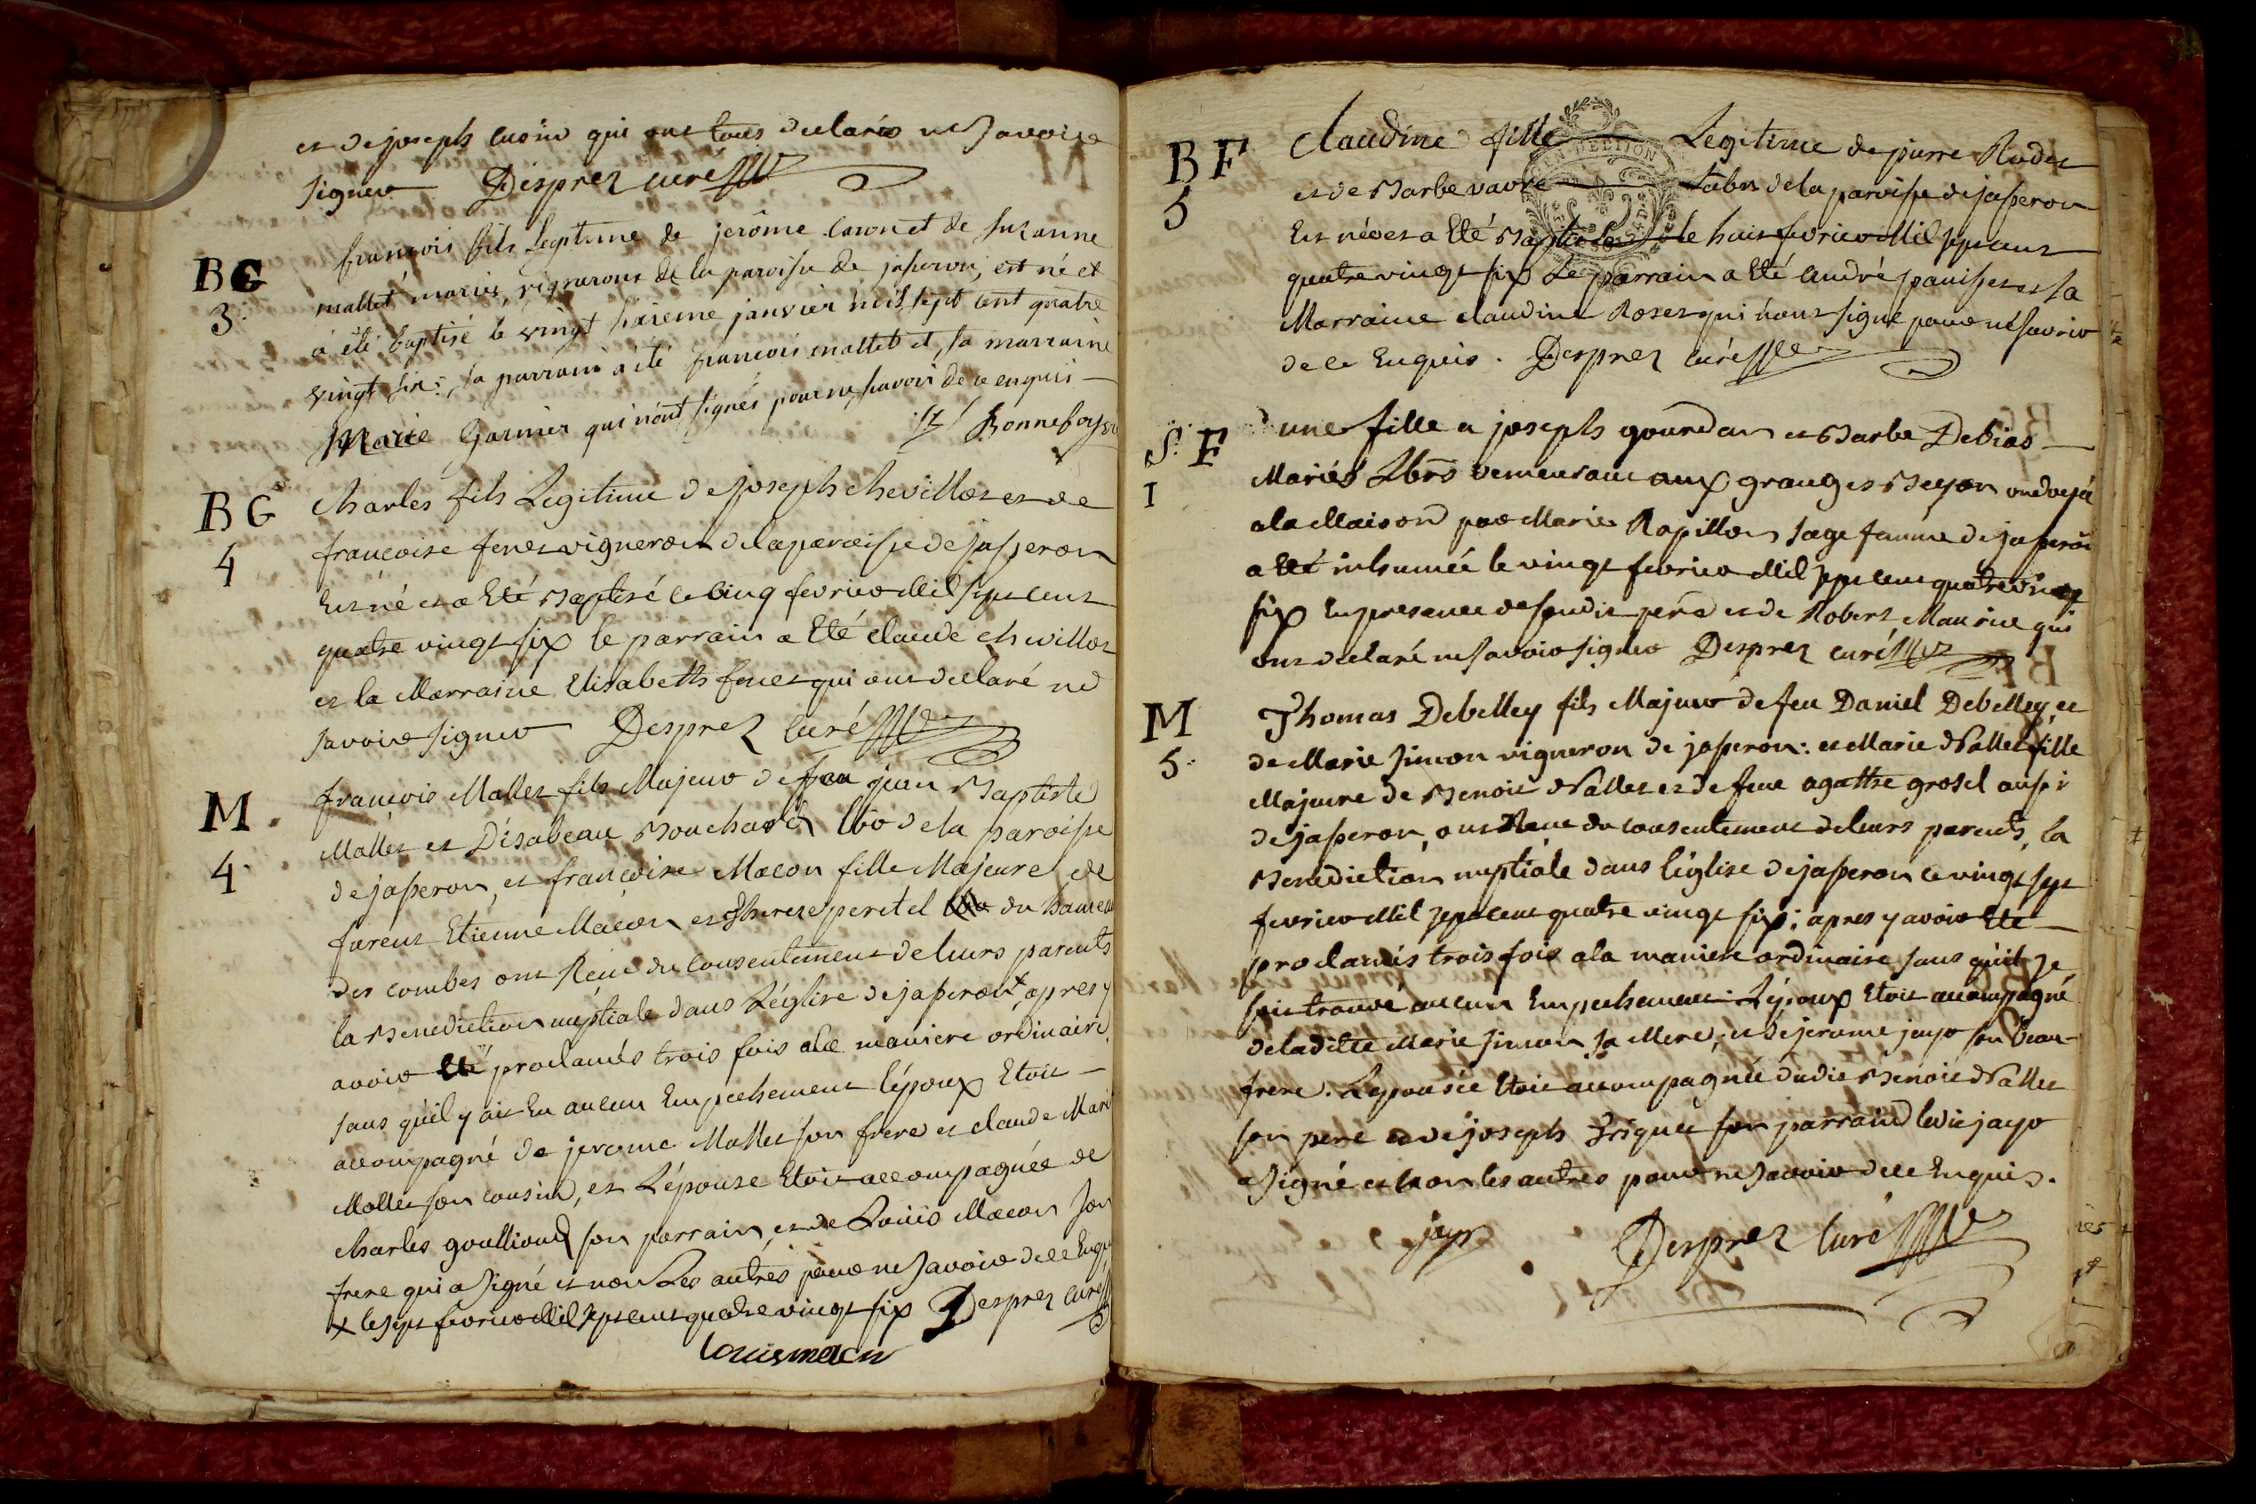 et de joseph cusin qui ont tous declarés ne Savoire
signer Desprez curé
BG
3.
françois fils Legitime de jerôme caron et de suzanne
mallet mariés, vignerons de la paroisse de jasseron, est né et
à été baptisé le vingt janvier mil sept cent quatre
vingt six: sa parrain à été francois mallet et, sa marraine
Marie Garnier qui n'ont signés pour ne savoir de ce enquis —
BG
4
Charles fils Legitime de joseph chevillot et de
francoise feret vigneron de la paroisse de jasseron
Est né et a Eté Baptisé le cinq fevrier Mil sept cent
quatre vingt six le parrain a Eté claude chevillot
et la Marraine Elisabeth feret qui ont declaré ne
savoir signer Desprez curé
M.
4.
francois Mallet fils Majeur de feu jean Baptiste
Mallet et D'isabeau Bouchard lbr de la paroisse
de jasseron, et francoise Macon fille Majeure de
furent Etienne Macon et Therese peritel du hameau
des combes ont Reçu du consentement de leurs parents
la Benediction nuptiale dans L'église de jasseron + apres y
avoir Eté proclamés trois fois a la maniere ordinaire
sans qu'il y ait Eu aucun Empechement l'époux Etoit —
accompagné de jerome Mallet son frere et claude Marie
Mallet son cousin, et L'épouse Etoit accompagnée de
Charles goullioud son parrain, et de Louis Macon son
frere qui a signé et non Les autres pour ne savoir de ce Enquis
+ le sept fevrier Mil sept cent quatre vingt six Desprez curé
Louis macon
BF
5
Claudine fille Legitime de pierre Rodet
et de Barbe vavre Labrs de la paroisse de jasseron
Est née et a Eté Baptisée le huit fevrier Mil sept cent
quatre vingt six Le parrain a Eté André et sa
Marraine claudine Roset qui n'ont signé pour ne savoir
de ce Enquis. Desprez curé
S. F
I
une fille a joseph gourdan et Barbe Debias —
Mariés Lbrs demeurant aux granges Beyon ondoyée
a la Maison par Marie Rapillon sage femme de jasseron
a Eté inhumée le vingt fevrier Mil sept cent quatre vingt
six En presence de sondit pere et de Robert Maurice qui
ont declaré ne savoir signer Desprez curé
M
5.
Thomas Debelley fils Majeur de feu Daniel Debelley, et
de Marie Simon vigneron de jasseron: et Marie Nallet fille
Majeure de Benoit Nallet et de feue agathe grosel aussi
de jasseron, ont Reçu du consentement de leurs parents, la
Benediction nuptiale dans l'église de jasseron le vingt sept
fevrier Mil sept cent quatre vingt six; apres y avoir Eté —
proclamés trois fois a la maniere ordinaire sans qu'il se
soit trouvé aucun Empechement. L'époux Etoit accompagné
de ladite Marie Simon sa Mere, et de jerome jayr son beau-
frere. L'epousée Etoit accompagnée dudit Benoit Nallet
son pere et de joseph son parrain ledit jayr
a signé et non les autres pour ne savoir de ce Enquis.
jayr Desprez Curé